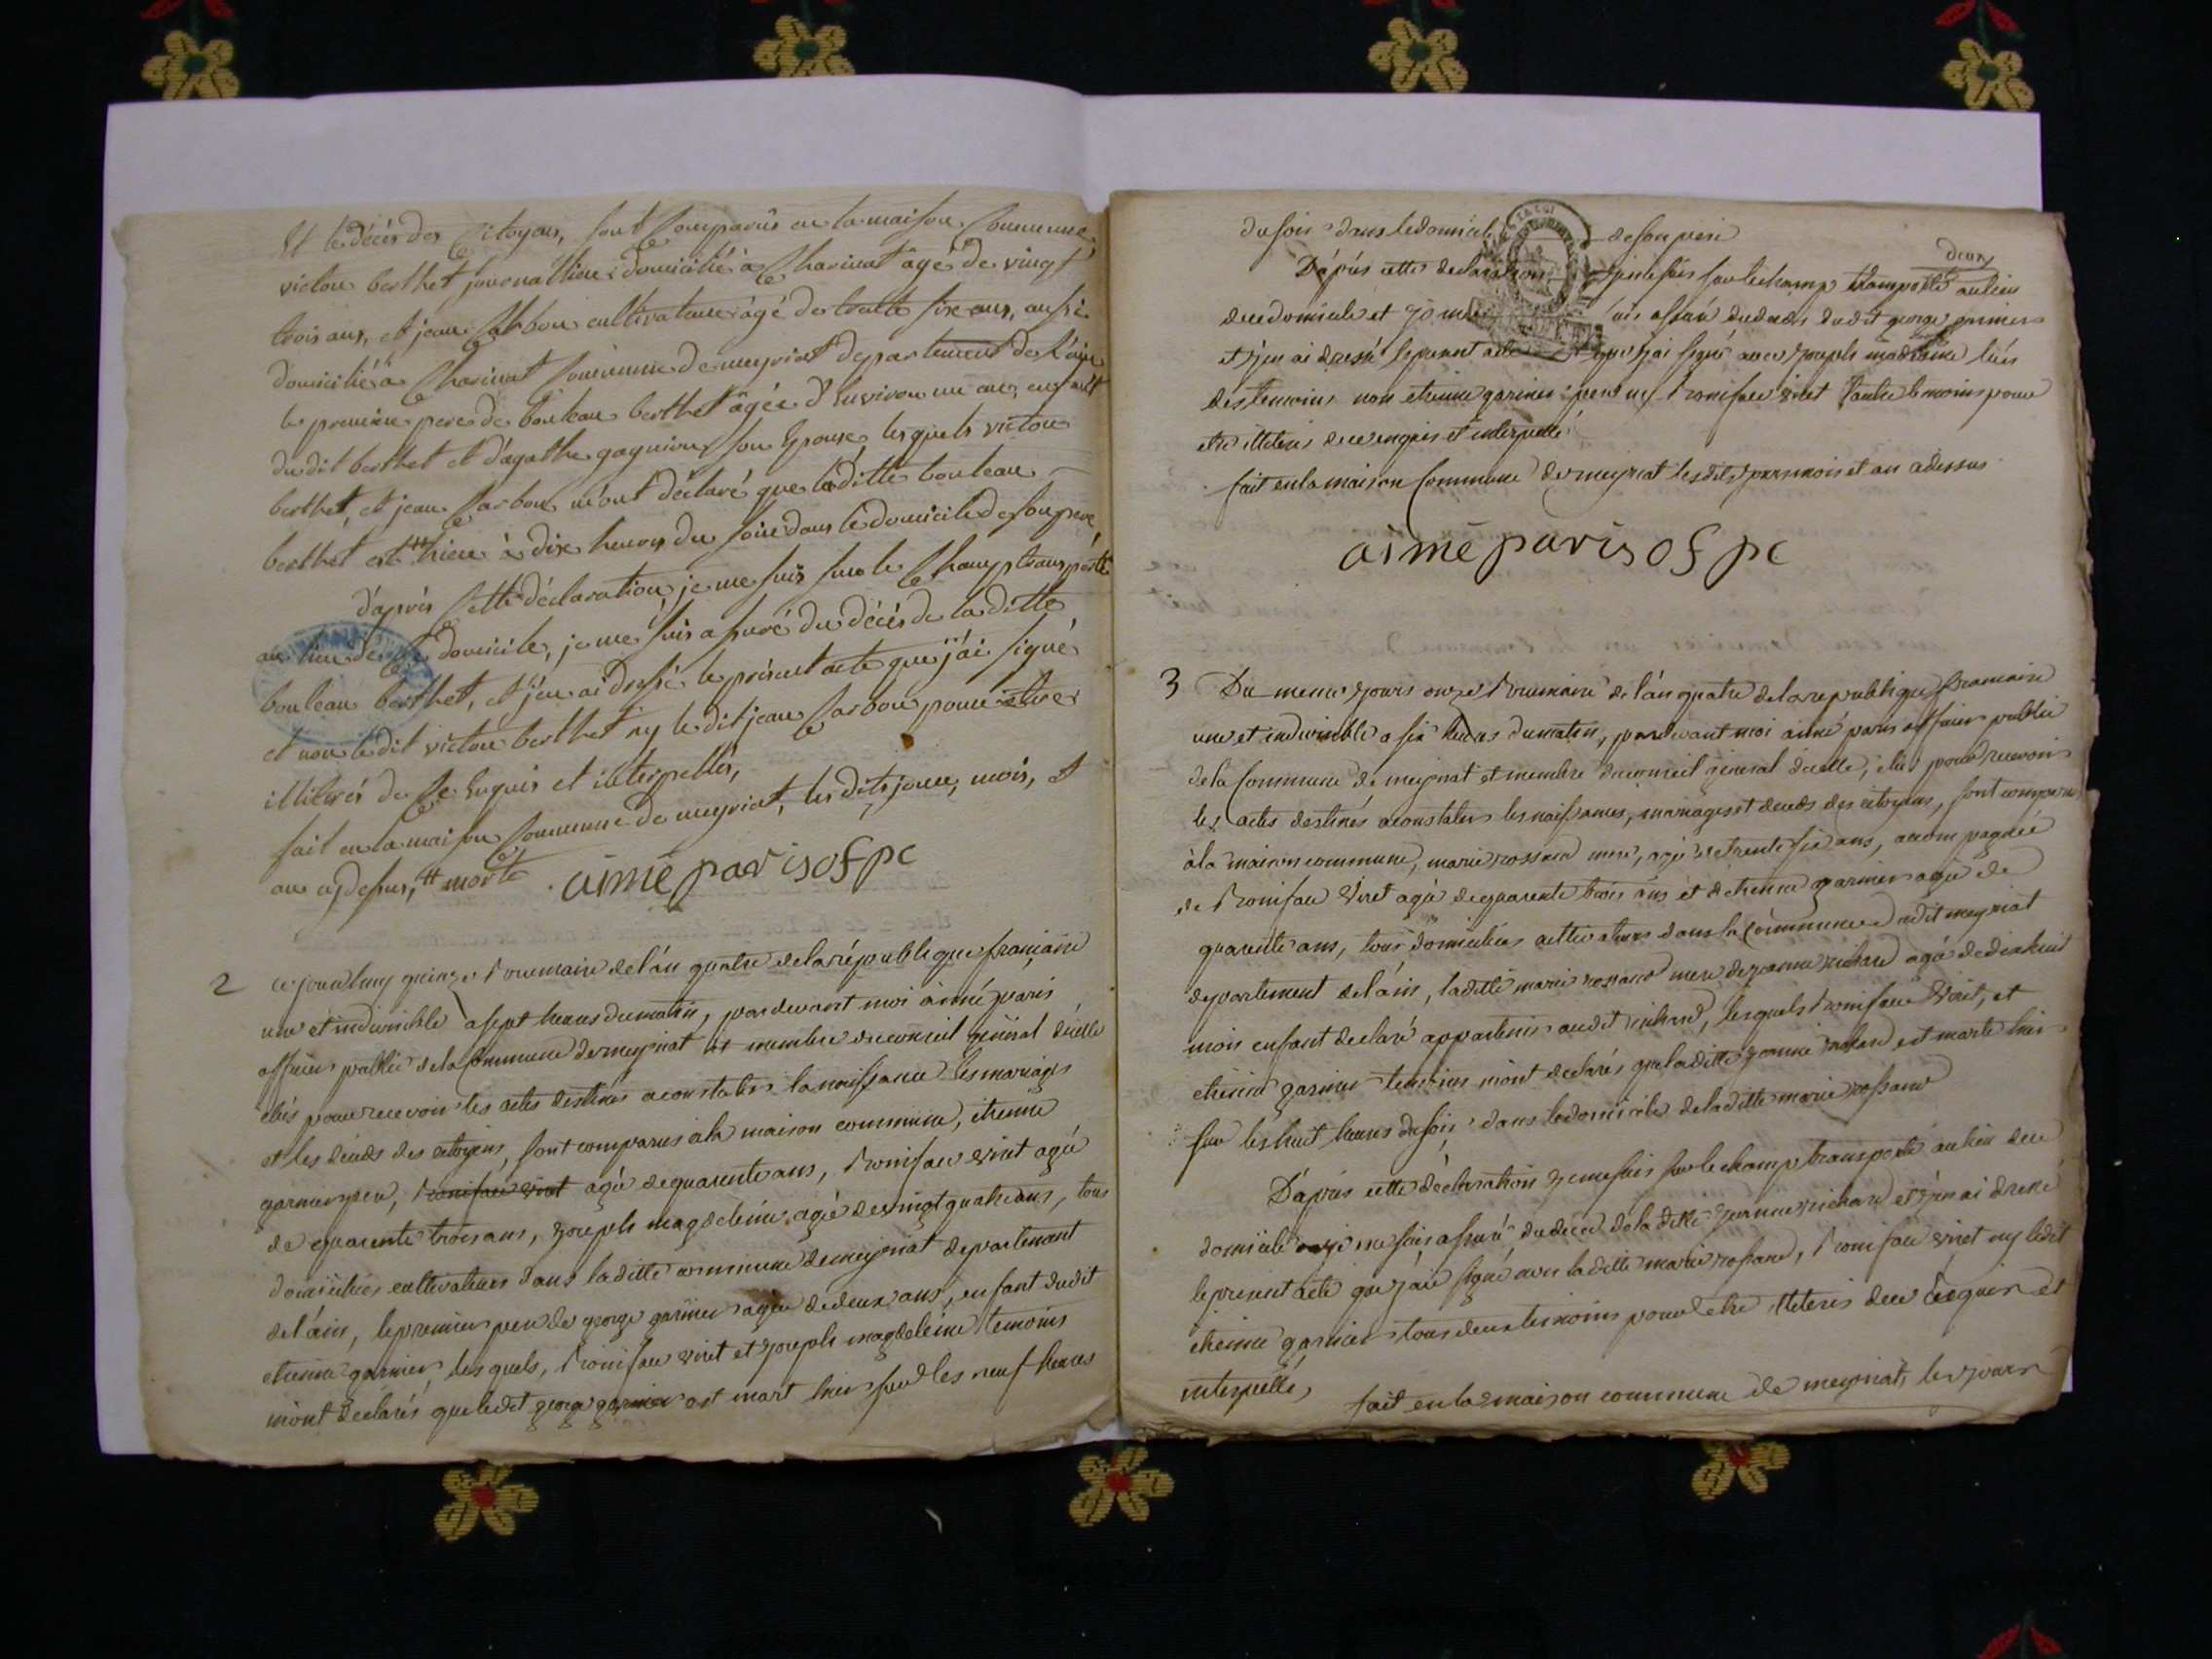 Et le décès des Citoyens, sont Comparûs en la maison Commune
victor berthet journallier domicilié à Charinat agé de vingt
trois ans, et jean Carbon cultivateur âgé de trente six ans, aussi
domicilié à Charinat Commune de meyriat departement de l'ain
le premier pere de bouleau berthet âgée d'Environ un an, enfant
du dit berthet et d'agathe gagnieur son Epouse, lesquels victor
berthet, et jean Carbon m'ont déclaré que laditte bouleau
berthet est # hier à dix heures du soir dans le domicile de son pere,
d'aprés Cette déclaration, je me suis sur le Champ transporté
au lieu de Ce domicile, je me suis assuré du décès de laditte
bouleau berthet, et j'en ai dressé le présent acte que j'ai signé
et non le dit victor berthet ny le dit jean Carbon pour être
illiterés de Ce Enquis et interpellés,
fait en la maison Commune de meyriat, les dits jour, mois, &
an cy dessus, # morte
aimé paris of pc
2 ce jourd'huy quinze brumaire de l'an quatre de la république française
une et indivisible a sept heures du matin, pardevant moi aimé paris
officier public de la Commune de meyriat et membre du conseil général d'icelle
élus pour recevoir les actes destinés a constater la naissance les mariages
et les décés des citoyens, sont comparus a la maison commune, etienne
garnier pere, boniface viret agé de quarente ans, boniface viret agé
de quarente trois ans, joseph magdeleine agé de vingt quatre ans, tous
domiciliés cultivateurs dans laditte commune de meyriat departement
de l'ain, le premier pere de george garnier agée de deux ans, enfant dudit
etienne garnier, lesquels, boniface viret et joseph magdeleine temoins
mont declarés que ledit george garnier est mort hier sur les neuf heures
du soir dans le domicile de son pere
deux
D'aprés cette declaration je me suis sur le champ transporté au lieu
de ce domicile et je me suis assuré du decés dudit george garnier
et j'en ai dressé le present acte que j'ai signé avec joseph magdeleine l'un
des temoins non etienne garnier pere ny boniface viret l'autre temoins pour
etre illiterés de ce enquis et interpellé
fait en la maison Commune de meyriat les dits jours mois et an adessus
aimé paris of pc
3 Du meme jours onze brumaire de l'an quatre de la republique francaise
une et indivisible a six heures du matin, pardevant moi aimé paris officier public
de la Commune de meyriat et membre du conseil général d'icelle, elus pour recevoir
les actes destinés a constater les naissances, mariages et decés des citoyens, sont comparus
à la maison commune, marie rossand mere, agée de trente six ans, accompagnée
de boniface viret agé de quarente trois ans et d'etienne garnier agé de
quarente ans, tous domiciliés cultivateurs dans la Commune dudit meyriat
departement de l'ain, laditte marie rossand mere de jeanne richard agée de dix huit
mois enfant declaré appartenir audit richard, lesquels boniface viret, et
etienne garnier temoins mont declarés que laditte jeanne richard est morte hier
sur les huit heures du soir dans le domicile de laditte marie rossand
D'aprés cette déclaration je me suis sur le champ transporté au lieu de ce
domicile je me suis assuré du décé de la ditte jeanne richard et j'en ai dressé
le present acte que j'ai signé avec la ditte marie rossand, boniface viret ny ledit
etienne garnier tous deux temoins pour etre illiterés de ce enquis et
interpellés,
fait en la maison commune de meyriat, les jours